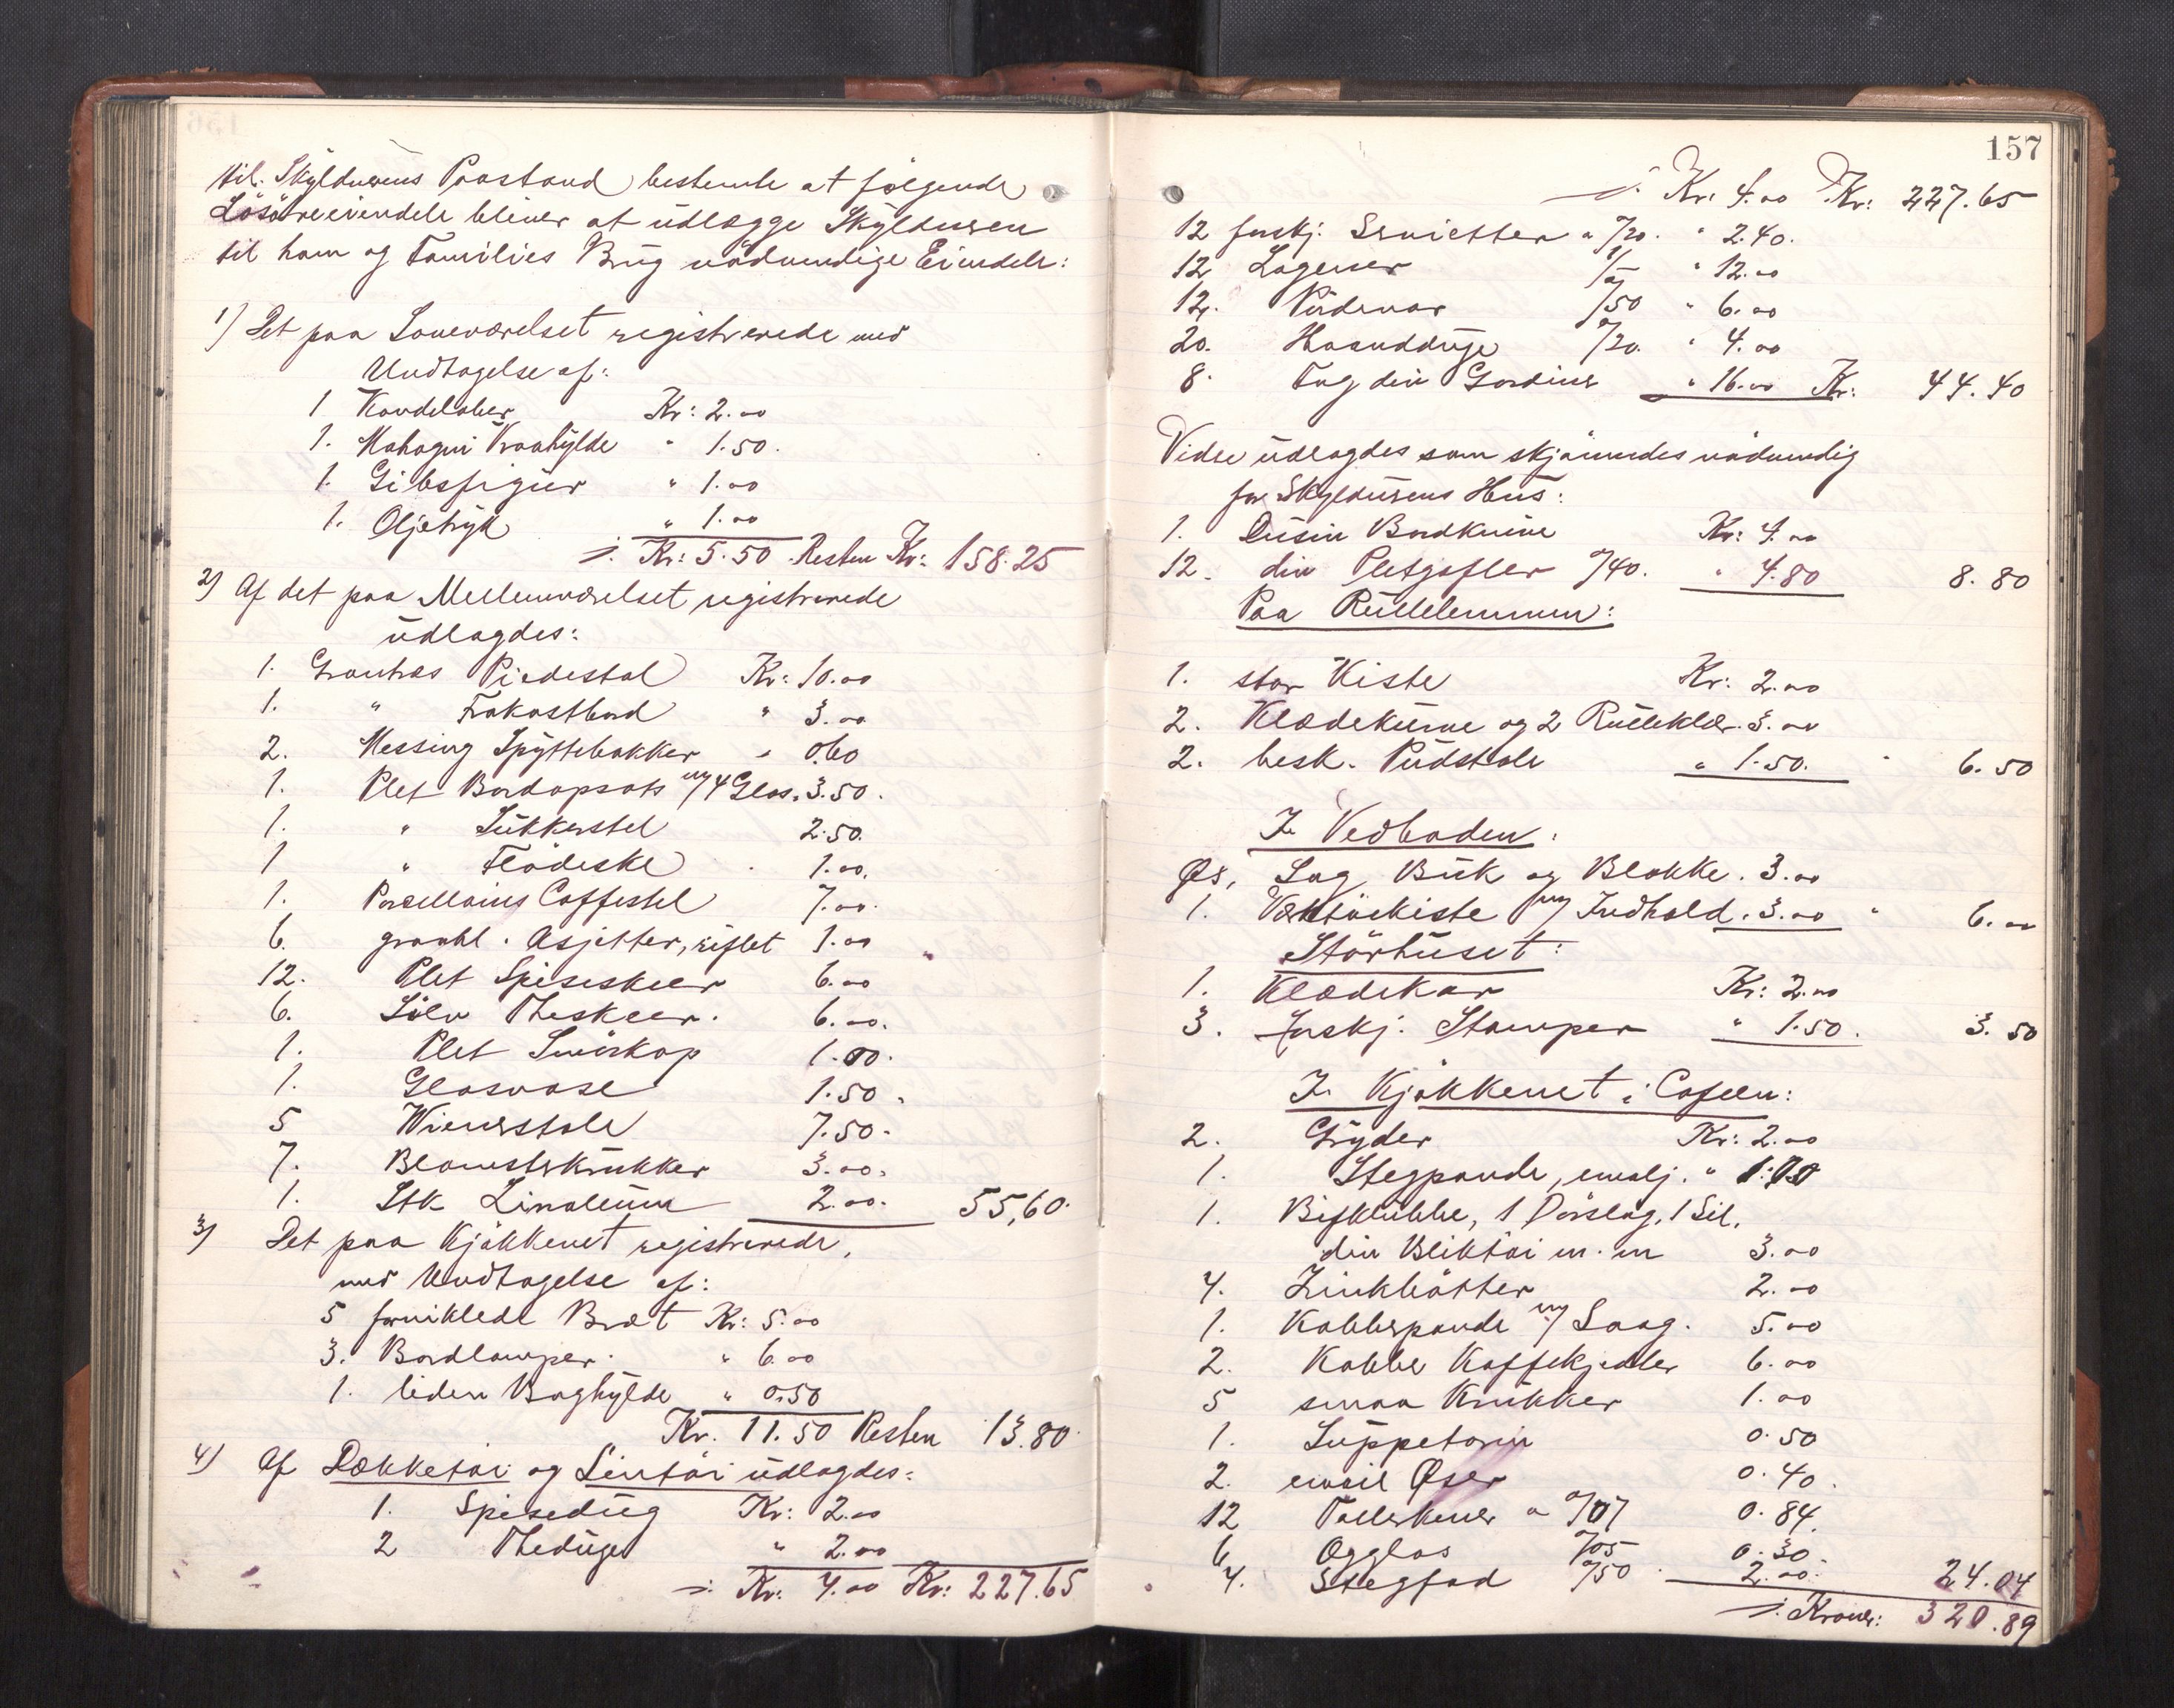 til Skyldnerens Paastand bestemte at følgende
Løsøreeiendele bliver at udlægge Skyldneren
til ham og Families Brug nødvendige Eiendele:
1) Det paa Soveværelset registrerede med
Undtagelse af:
1 Kandelaber Kr: 2.00
1. Mahogni Vraahylde " 1.50.
1. Gibsfigur " 1.00
1. Oljetryk " 1.00
Kr: 5.50 Resten Kr: 158.25
2) Af det paa Mellemværelset registrerede
udlagdes:
1. Grantræs Piedestal Kr: 10.00
1. " Frokostbord " 3.00
2. Messing Spyttebakker " 0.60
1. Plet Bordopsats m/4 Glas. 3.50.
1. " Sukkerstel 2.50.
1 " Flødeske 1.00.
1. Porcellains Caffestel 7.00.
6. graahl. Asjetter, riflet 1.00
12. Plet Spiseskeer 6.00
6. Sølv Theskeer. 6.00.
1. Plet Smørkop 1.00.
1. Glasvase 1.50.
5 Wienerstole 7.50.
7. Blomsterkrukker 3.00.
1. Stk Linoleum 2.00. 55,60.
3) Det paa Kjøkkenet registrerede,
med Undtagelse af:
5 forniklede Bræt Kr: 5.00
3. Bordlamper. " 6.00
1. liden Boghylde " 0.50
Kr. 11.50 Resten 13.80.
4) Af Dækketøi og Lintøi udlagdes:
1. Spisedug Kr: 2.00
2 Theduge " 2.00
Kr: 4.00 Kr: 227.65
157
Kr: 4.00 Kr: 227.65
12 forskj. Servietter a 0/20. " 2.40.
12 Lagener 1/00 " 12.00
12. Pudevar 0/50 " 6.00
20. Haandduge 0/20. " 4.00
8. Fag div Gardiner " 16.00 Kr: 44.40
Videre udlagdes som skjønnedes nødvendig
for Skyldnerens Hus:
1. Dusin Bordknive Kr: 4.00
12. div Pletgafler 0/40. " 4.80 8.80
Paa Rullelemmen:
1. stor Kiste Kr: 2.00
2. Klædekurve og 2 Rulleklæ. 3.00
2. besk. Pudstole " 1.50. 6.50
I Vedboden:
Øs, Sag Buk og Blokke. 3.00
1. Værktøikiste m/ Indhold. 3.00 " 6.00
Størhuset:
1. Klædekar Kr: 2.00
3. forskj. Stamper " 1.50. 3.50
I Kjøkkenet i Cafeen:
2. Gryder Kr: 2.00
1. Stegpande, emalj. "
1. Bifklubbe, 1 Dørslag, 1 Sil,
div Bliktøi m.m 3.00
4. Zinkbøtter 2.00
1. Kobberpande m/ Laag. 5.00
2. Kobber Kaffekjedler 6.00
5 smaa Krukker 1.00
1. Suppeterrin 0.50
2. emeil Øser 0.40.
12 Tallerkener a 0/07 0.84.
6 Ægglas 0/05 0.30.
4. Stegfad 0/50 2.00. 24.04
Kroner: 320.89